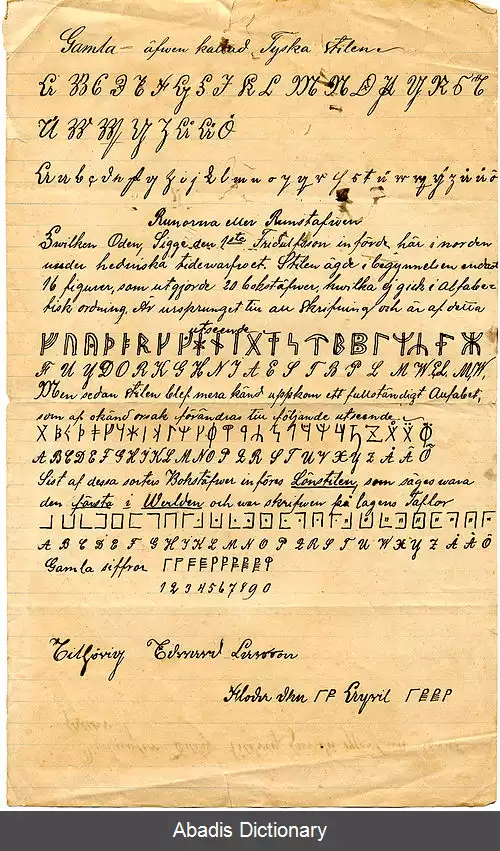 Gamla – äfwen kallad Tyska stilen
A B C D E F G H I K L M N O P Q R S T
U W X Y Z Å Ä Ö
a b c d e f g h i j k l m n o p q r s t u w x y z å ä ö
Runorna eller Runstafwen
Hwilken Oden, Sigge den 1ste Fridulfsson införde här i norden
under hedniska tidewarfwet. Stilen ägde i begynnelsen endast
16 figurer, som utgjorde 20 bokstäfwer, hwilka ej gick i Alfabe-
tisk ordning, är ursprunget till all Skrifning och är af detta
utseende
F U Y D O R K G H N I A E S T B P L M
Men sedan stilen blef mera känd uppkom ett fullständigt Alfabet,
som af okänd orsak förändras till följande utseende
A B C D E F G H I K L M N O P Q R S T U W X Y Z Å Ä Ö
Sist af dessa sorters Bokstäfwer införes Lönstilen, som säges wara
den första i Werlden och war skrifwen på lagens taflor
A B C D E F G H I K L M N O P Q R S T U W X Y Z Å Ä Ö
Gamla siffror
1 2 3 4 5 6 7 8 9 0
Tillhörig Edward Larsson
Kloda den ᛚᚠ April
Abadis Dictionary